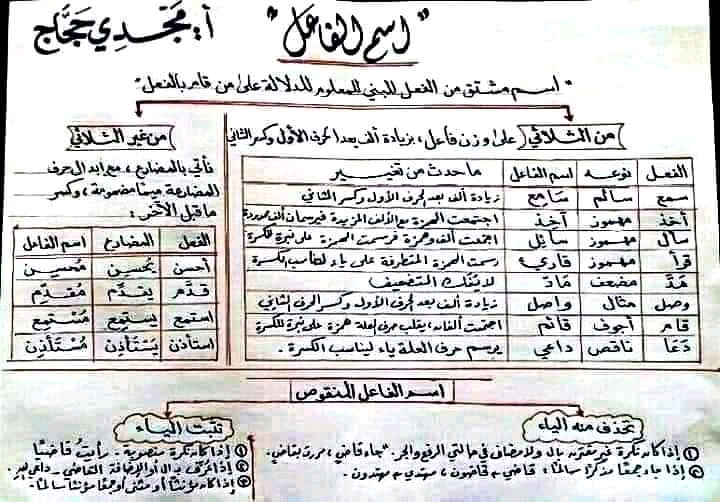 "اسم الفاعل" أ. مَجْدِي حَجَّاج
"اسم مشتق من الفعل المبني للمعلوم للدلالة على من قام بالفعل"
من الثلاثي على وزن فاعل، بزيادة ألف بعد الحرف الأول وكسر الثاني
الفعل نوعه اسم الفاعل ما حدث من تغيير
سمع سالم سَامِع زيادة ألف بعد الحرف الأول وكسر الثاني
أخذ مهموز آخِذ اجتمعت الهمزة مع الألف المزيدة فيرسمان ألف ممدودة
سأل مهموز سائِل اجتمعت ألف وهمزة فرسمت الهمزة على نبرة للكسرة
قرأ مهموز قارِئ رسمت الهمزة المتطرفة على ياء لتناسب الكسرة
مَدَّ مضعف مَادّ لا يُفَك التضعيف
وصل مثال واصل زيادة ألف بعد الحرف الأول وكسر الحرف الثاني
قام أجوف قائم اجتمعت ألفان، يقلب حرف العلة همزة على نبرة للكسرة
دَعَا ناقص داعي يرسم حرف العلة ياء ليناسب الكسرة.
من غير الثلاثي
نأتي بالمضارع، مع إبدال حرف
المضارعة ميمًا مضمومة، وكسر
ما قبل الآخر:
الفعل المضارع اسم الفاعل
أحسن يُحسِن مُحسِن
قدَّم يقدِّم مُقدِّم
استمع يستمِع مُسْتمِع
استأذن يَسْتأذِن مُسْتَأْذِن
اسم الفاعل المنقوص
تحذف منه الياء
١ إذا كان نكرة غير مقترنة بال ولا مضاف في حالتي الرفع والجر. "جاء قاضٍ، مررت بقاضٍ.
٢ إذا جاء جمعًا مذكرًا سالمًا: قاضي ← قاضون، مهتدي ← مهتدون.
تثبت الياء
١ إذا كان نكرة منصوبة. رأيتُ قاضيًا
٢ إذا عُرِّف بـ ال أو الإضافة القاضي - داعي
٣ إذا كان مؤنثًا أو مثنى أو جمعًا مؤنثًا سالمًا.